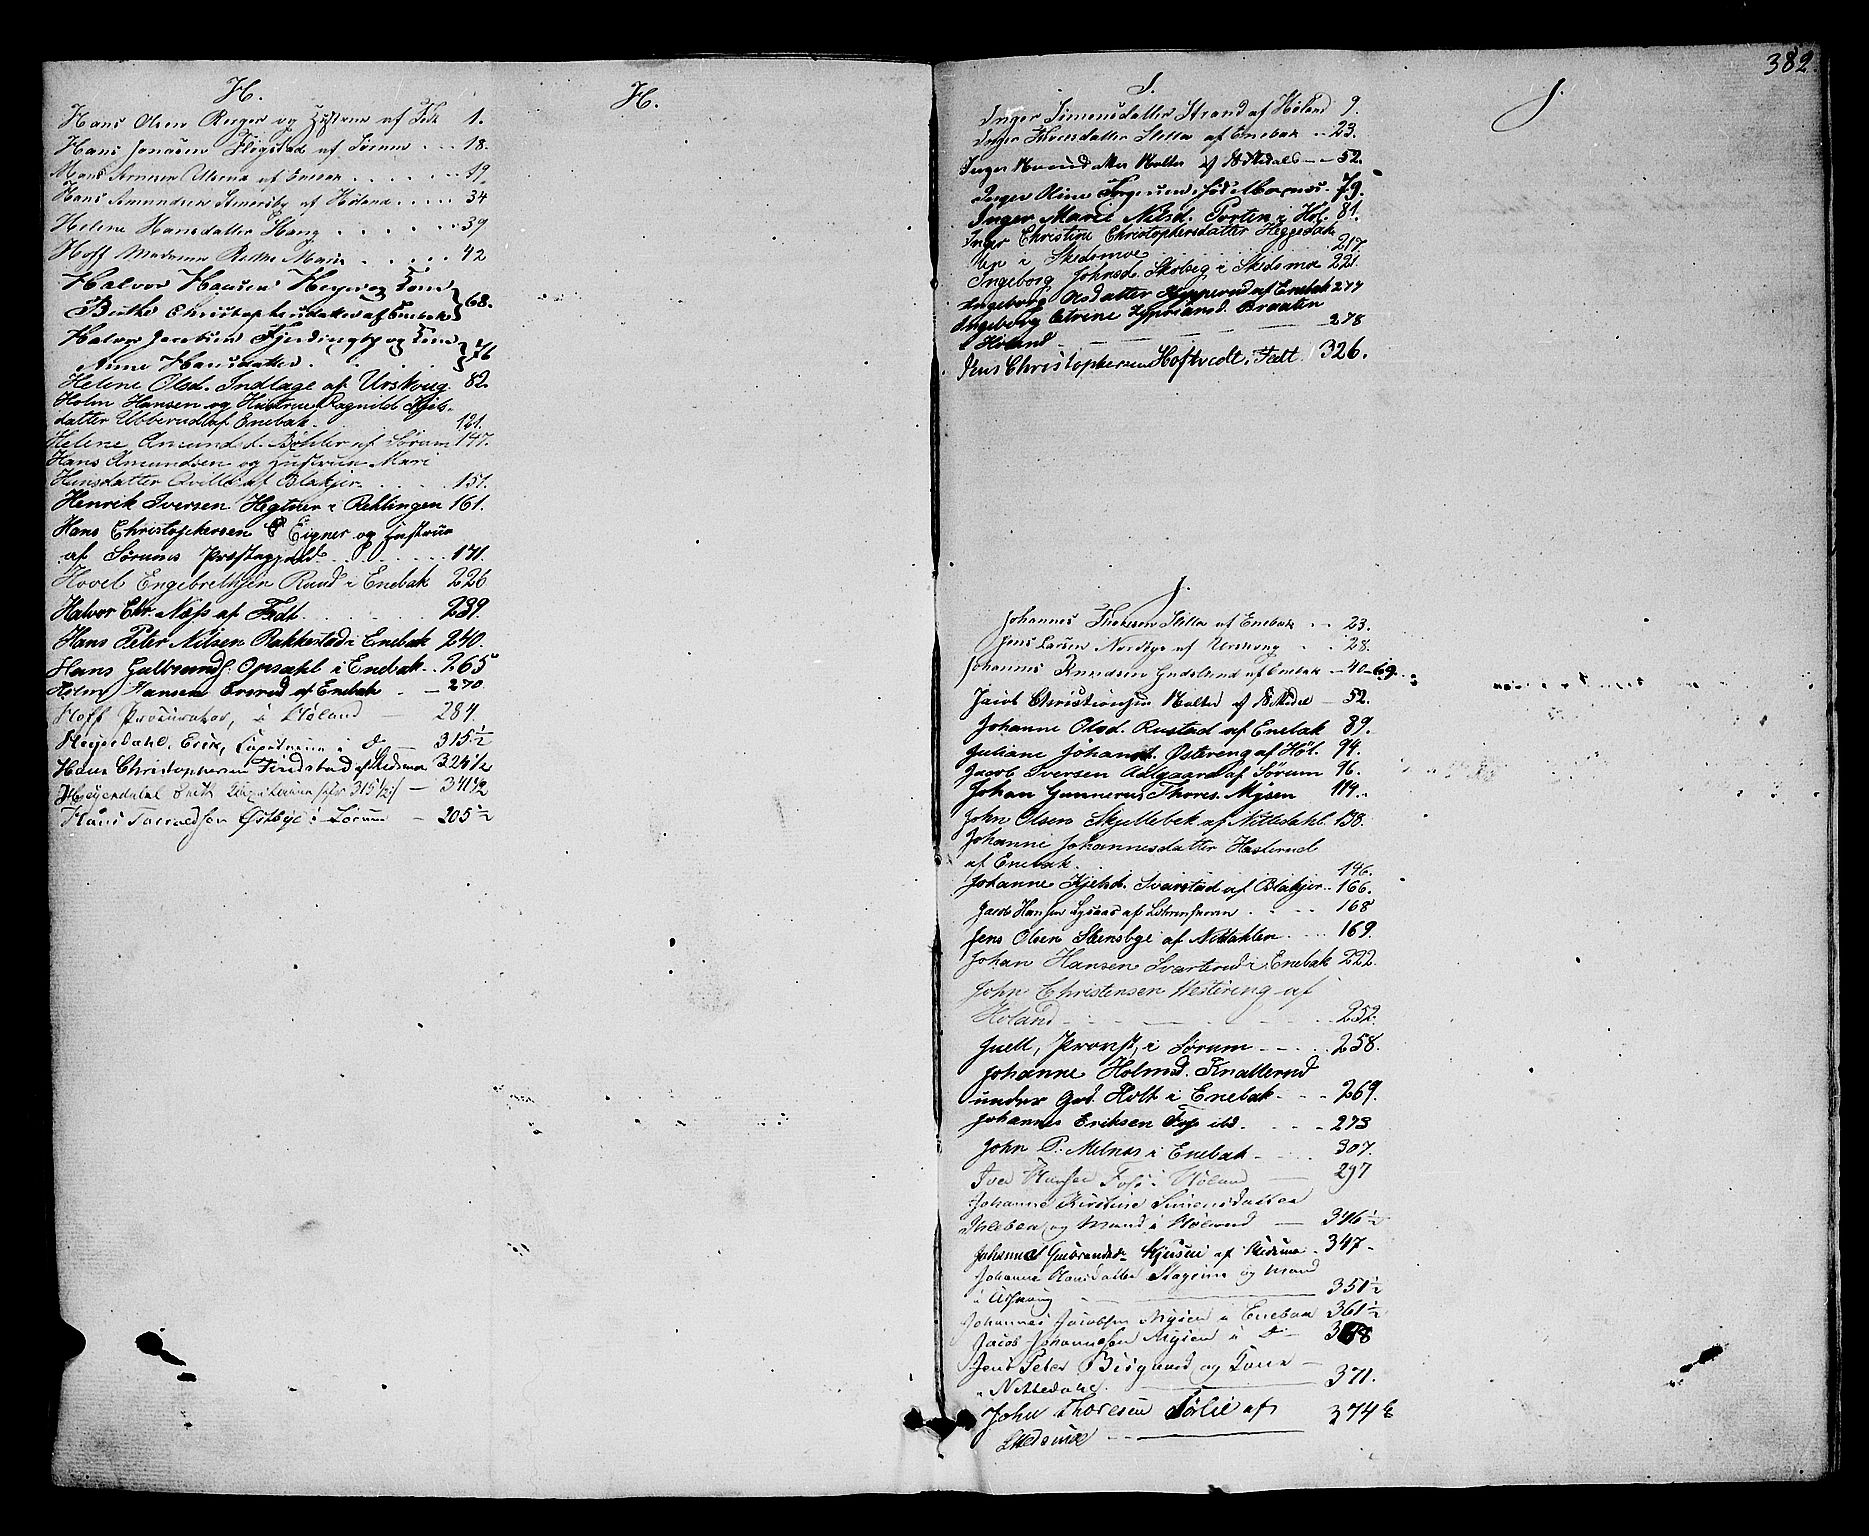 382.
H.
H.
Hans Olsen Berger og Hustrue af Fedt 1.
Hans Jonasen Fligstad af Sørum 18.
Hans Arnesen af Enebak 19.
Hans Amundsen af Høland 34
Helene Hansdatter Haug 39
Hoff Madame Marie 42
Halvor Hansen og Kone
Birthe Christophersdatter af Enebak 68.
Halvor Jacobsen Fjerdingby og Kone
Anne Hansdatter 76
Helene Olsd. Indlage af Urskoug 82.
Holm Hansen og Hustrue Ragnild Kjels-
datter Ubberud af Enebak. 121.
Helene Amundsd. Bøhler af Sørum 147.
Hans Amundsen og Hustrue Mari
Hansdatter Qville af Blakjer. 151.
Henrik Iversen Hegtner i Rehlingen 161.
Hans Christophersen Eigner og Hustrue
af Sørums Præstegjeld 171.
Hovel Engebrethsen Rud i Enebak 226
Halvor Chr. Næss af Fedt. 239.
Hans Peter Nilsen Rakkestad i Enebak 240.
Hans Gulbrands. Opsahl i Enebak 265
Holm Hansen af Enebak 270.
Hoff Procurator, i Høland 284.
Heyerdahl, Erik, Capitaine i do 315½
Hans Christophersen Findstad af Skedsmo 324½
Heyerdahl Erik Capitaine /: see 315½ :/ 341½
Hans Torvaldsen Østbye i Sørum 205½
I.
J.
Inger Simensdatter Strand af Høland 9.
Inger Thoresdatter Stilla af Enebak 23.
Inger datter Holter af N: Nedals 52.
Inger Oline Jørgensen 79.
Inger Marie Nilsd. Porten i Høl. 81.
Inger Christine Christophersdatter Heggedals
i Skedsmoe 217.
Ingeborg Johnsd. Skoberg i Skedsmoe 221
Ingeborg Olsdatter af Enebak 277
Ingeborg Cyprians d. Braaten
i Høland 278
Jens Christophersen Hoftvedt, Fedt. 326.
J.
Johannes Thoresen Stilla af Enebak 23.
Jens Larsen Nordbye af Urskoug 28.
Johannes Knudsen af Enebak 40-69.
Jacob Christiansen Holter af N: Nedal 52.
Johanne Olsd. Rustad af Enebak 89.
Juliane Johansd. Østereng af Høl. 94.
Jacob Iversen Aalgaard af Sørum 96.
Johan Gunnerus Thores. Mysen 114.
John Olsen Skyllebek af Nittedahl. 138.
Johanne Johannesdatter Hasterud
af Enebak. 146.
Johanne Kjelsd. Svarstad af Blakjer 166.
Jacob Hansen Lysaas af 168
Jens Olsen Stensbye af Nittedahlen 169.
Johan Hansen Svarterud i Enebak 222.
John Christensen Westereng af
Høland 252.
Juell, Provst, i Sørum 258.
Johanne Holmsd. Knallerud
under Grd. Holt i Enebak 269.
Johannes Eriksen Foss ibd. 273
John P. Melnæs i Enebak 307.
Iver Hansen Foss i Høland 297
Johanne Kirstine Simensdatter
og Mand i Høland 346½
Johannes Gulbrandsd. af Skedsmo 347
Johanne Hansdatter og Mand
i Urskoug 351½
Johannes Jacobsen Mysen i Enebak 361½
Jacob Johannesen Mysen i do 368
Jens Peter Bisgaard og Kone
i Nittedahl. 371.
John Thoresen Sørlie af
Skedsmoe 374½